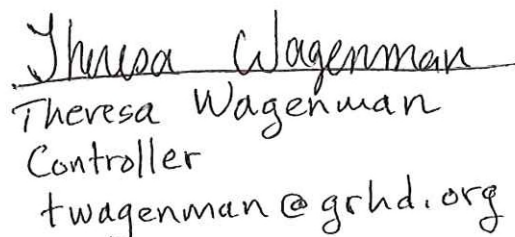 Theresa Wagenman
Theresa Wagenman
Controller
twagenman@grhd.org